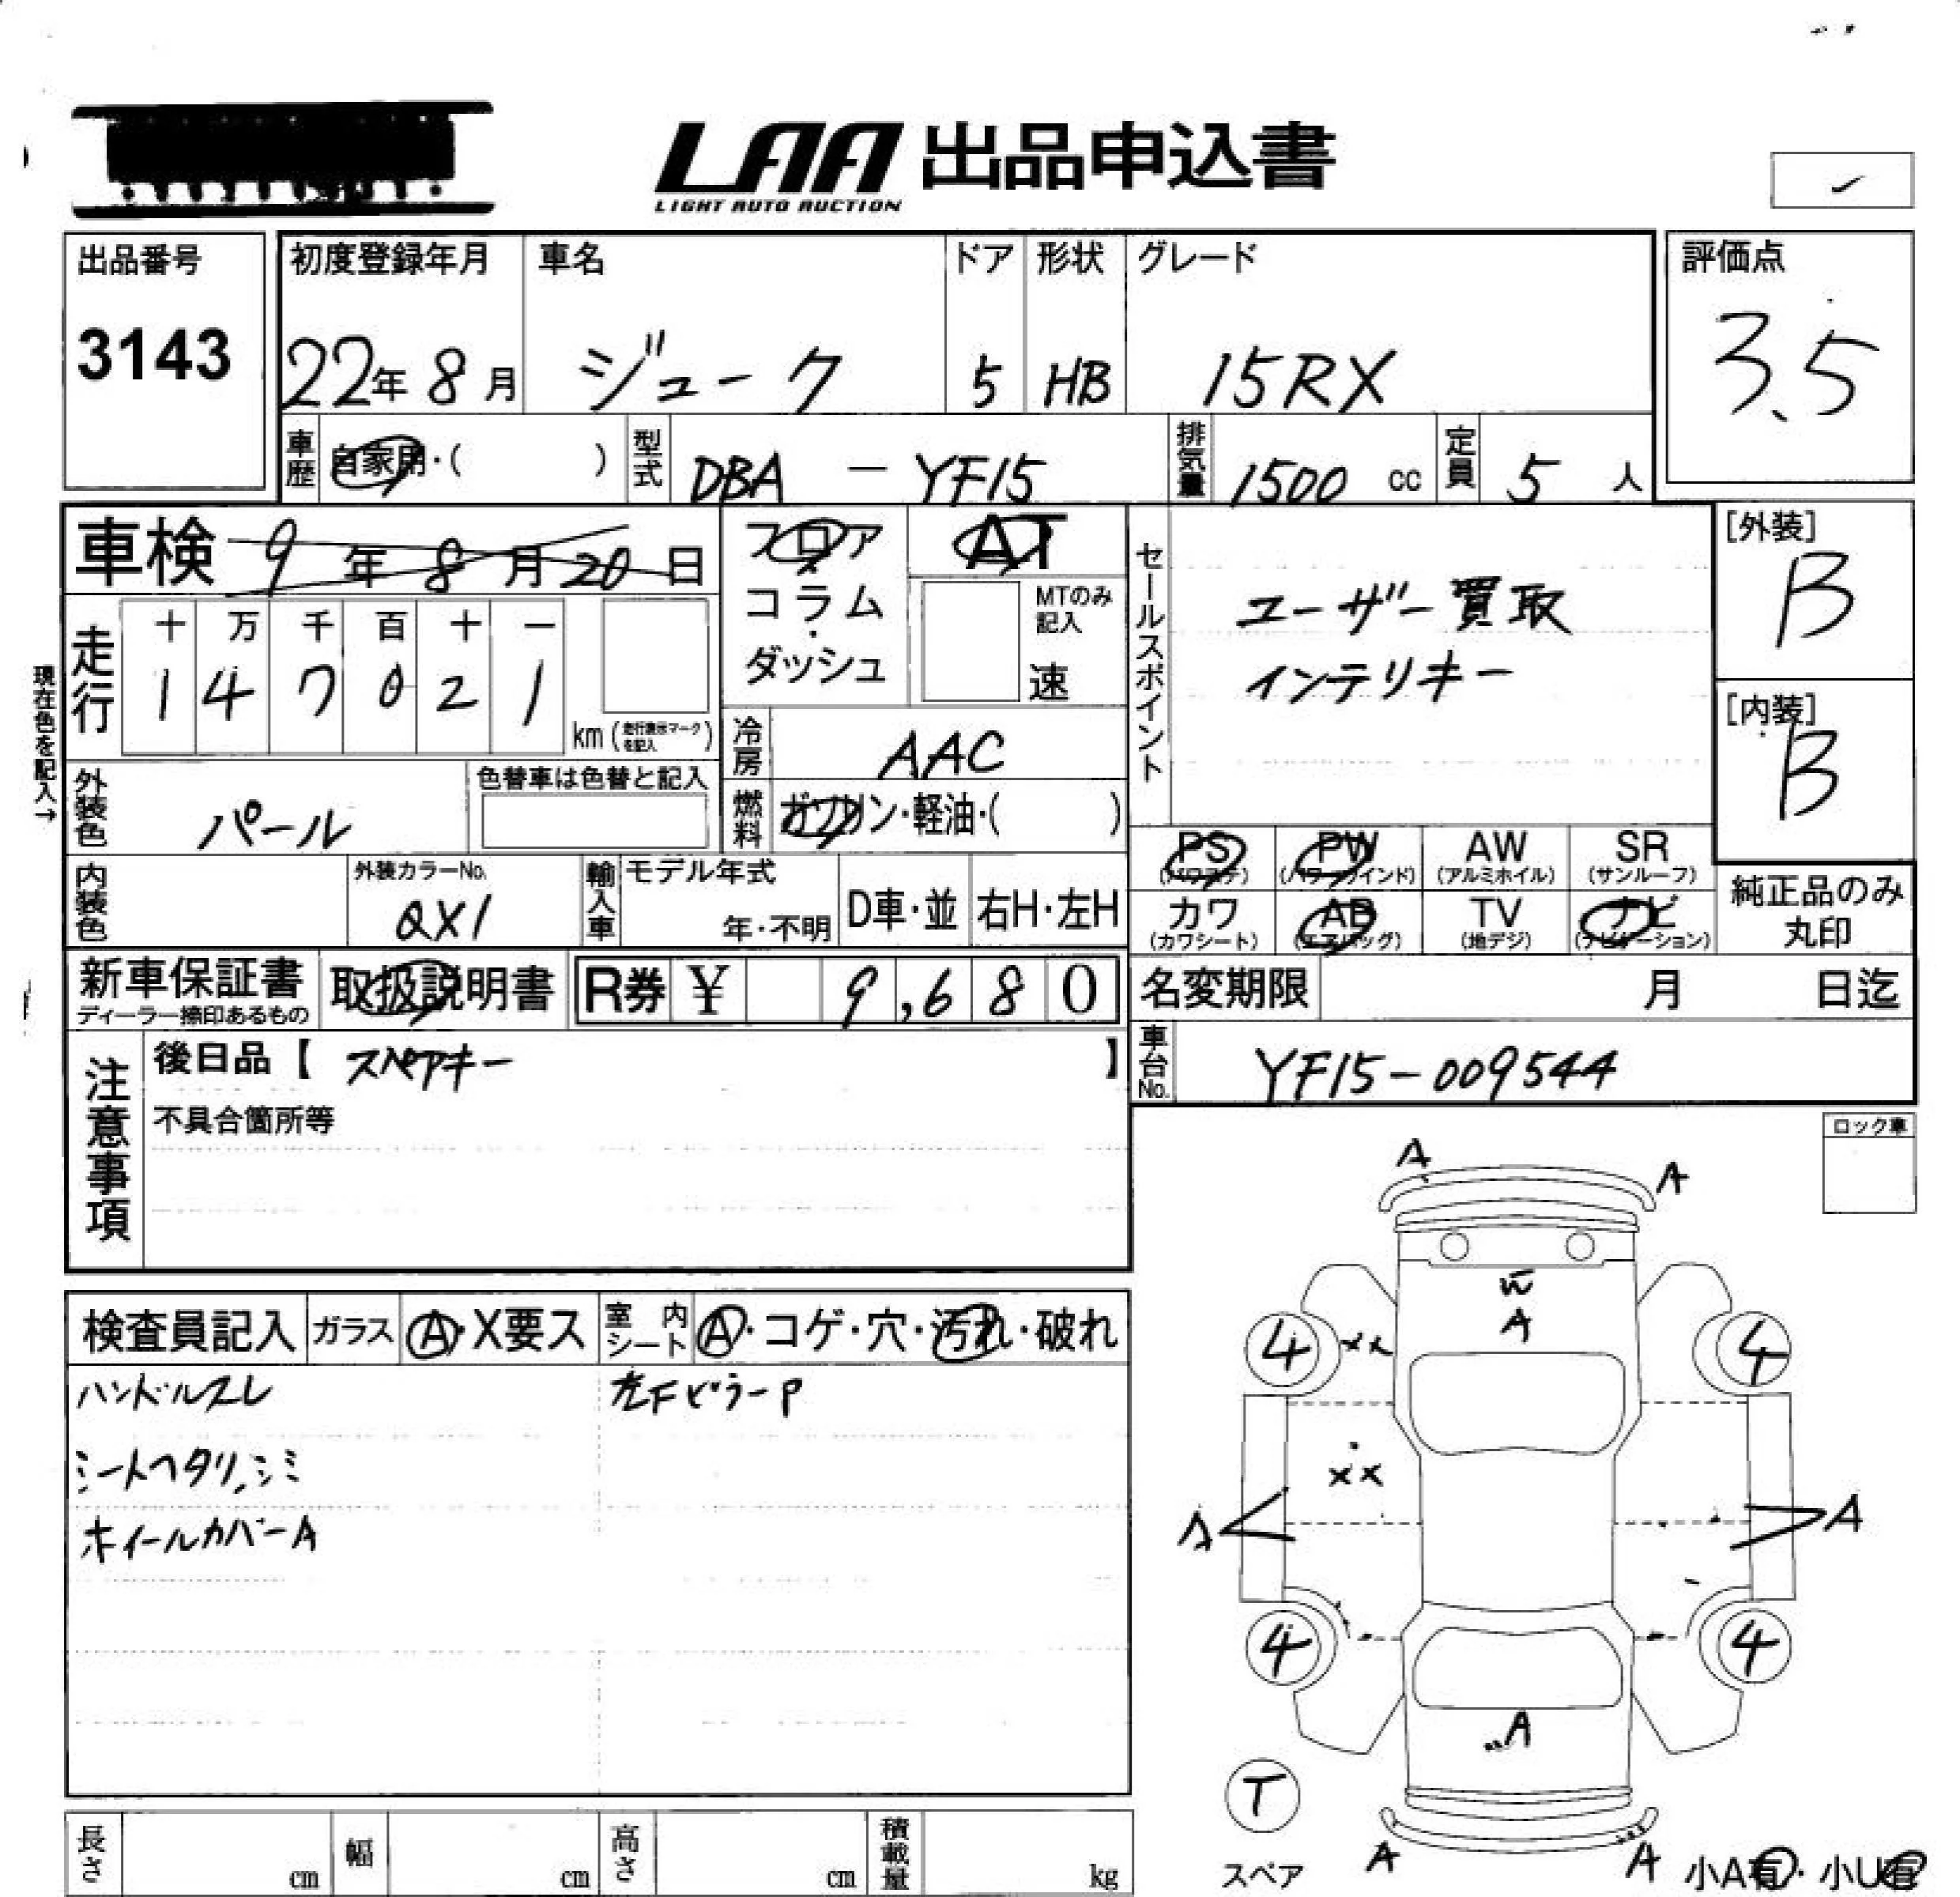 LAA 出品申込書
LIGHT AUTO AUCTION
出品番号
3143
初度登録年月 車名 ドア 形状 グレード
22年 8月 ジューク 5 HB 15RX
評価点
3.5
車歴 自家用・( ) 型式 DBA - YF15 排気量 1500 cc 定員 5 人
車検 9年 8月 20日
フロア
コラム
・
ダッシュ
AT
MTのみ
記入
速
セールスポイント
ユーザー買取
インテリキー
[外装]
B
[内装]
B
走行
十 万 千 百 十 一
1 4 7 0 2 1
km (走行表示マークを記入)
現在色を記入→
冷房 AAC
外装色 パール
色替車は色替と記入
燃料 ガソリン・軽油・( )
PS (パワステ) PW (パワーウインド) AW (アルミホイル) SR (サンルーフ)
カワ (カワシート) AB (エアバッグ) TV (地デジ) ナビ (ナビゲーション)
純正品のみ
丸印
内装色
外装カラーNo.
QX1
輸入車 モデル年式
年・不明 D車・並 右H・左H
新車保証書
ディーラー捺印あるもの
取扱説明書
R券 ¥ 9,680
名変期限 月 日迄
車台No. YF15-009544
注意事項
後日品【 スペアキー 】
不具合箇所等
ロック車
検査員記入 ガラス A・X要ス 室内シート A・コゲ・穴・汚れ・破れ
ハンドルスレ
左FピラーP
シートヘタリ,シミ
ホイールカバーA
A A
A
4 XX 4
XX
A A
4 4
A
T
スペア
A A
小A有・小U有
長さ cm 幅 cm 高さ cm 積載量 kg